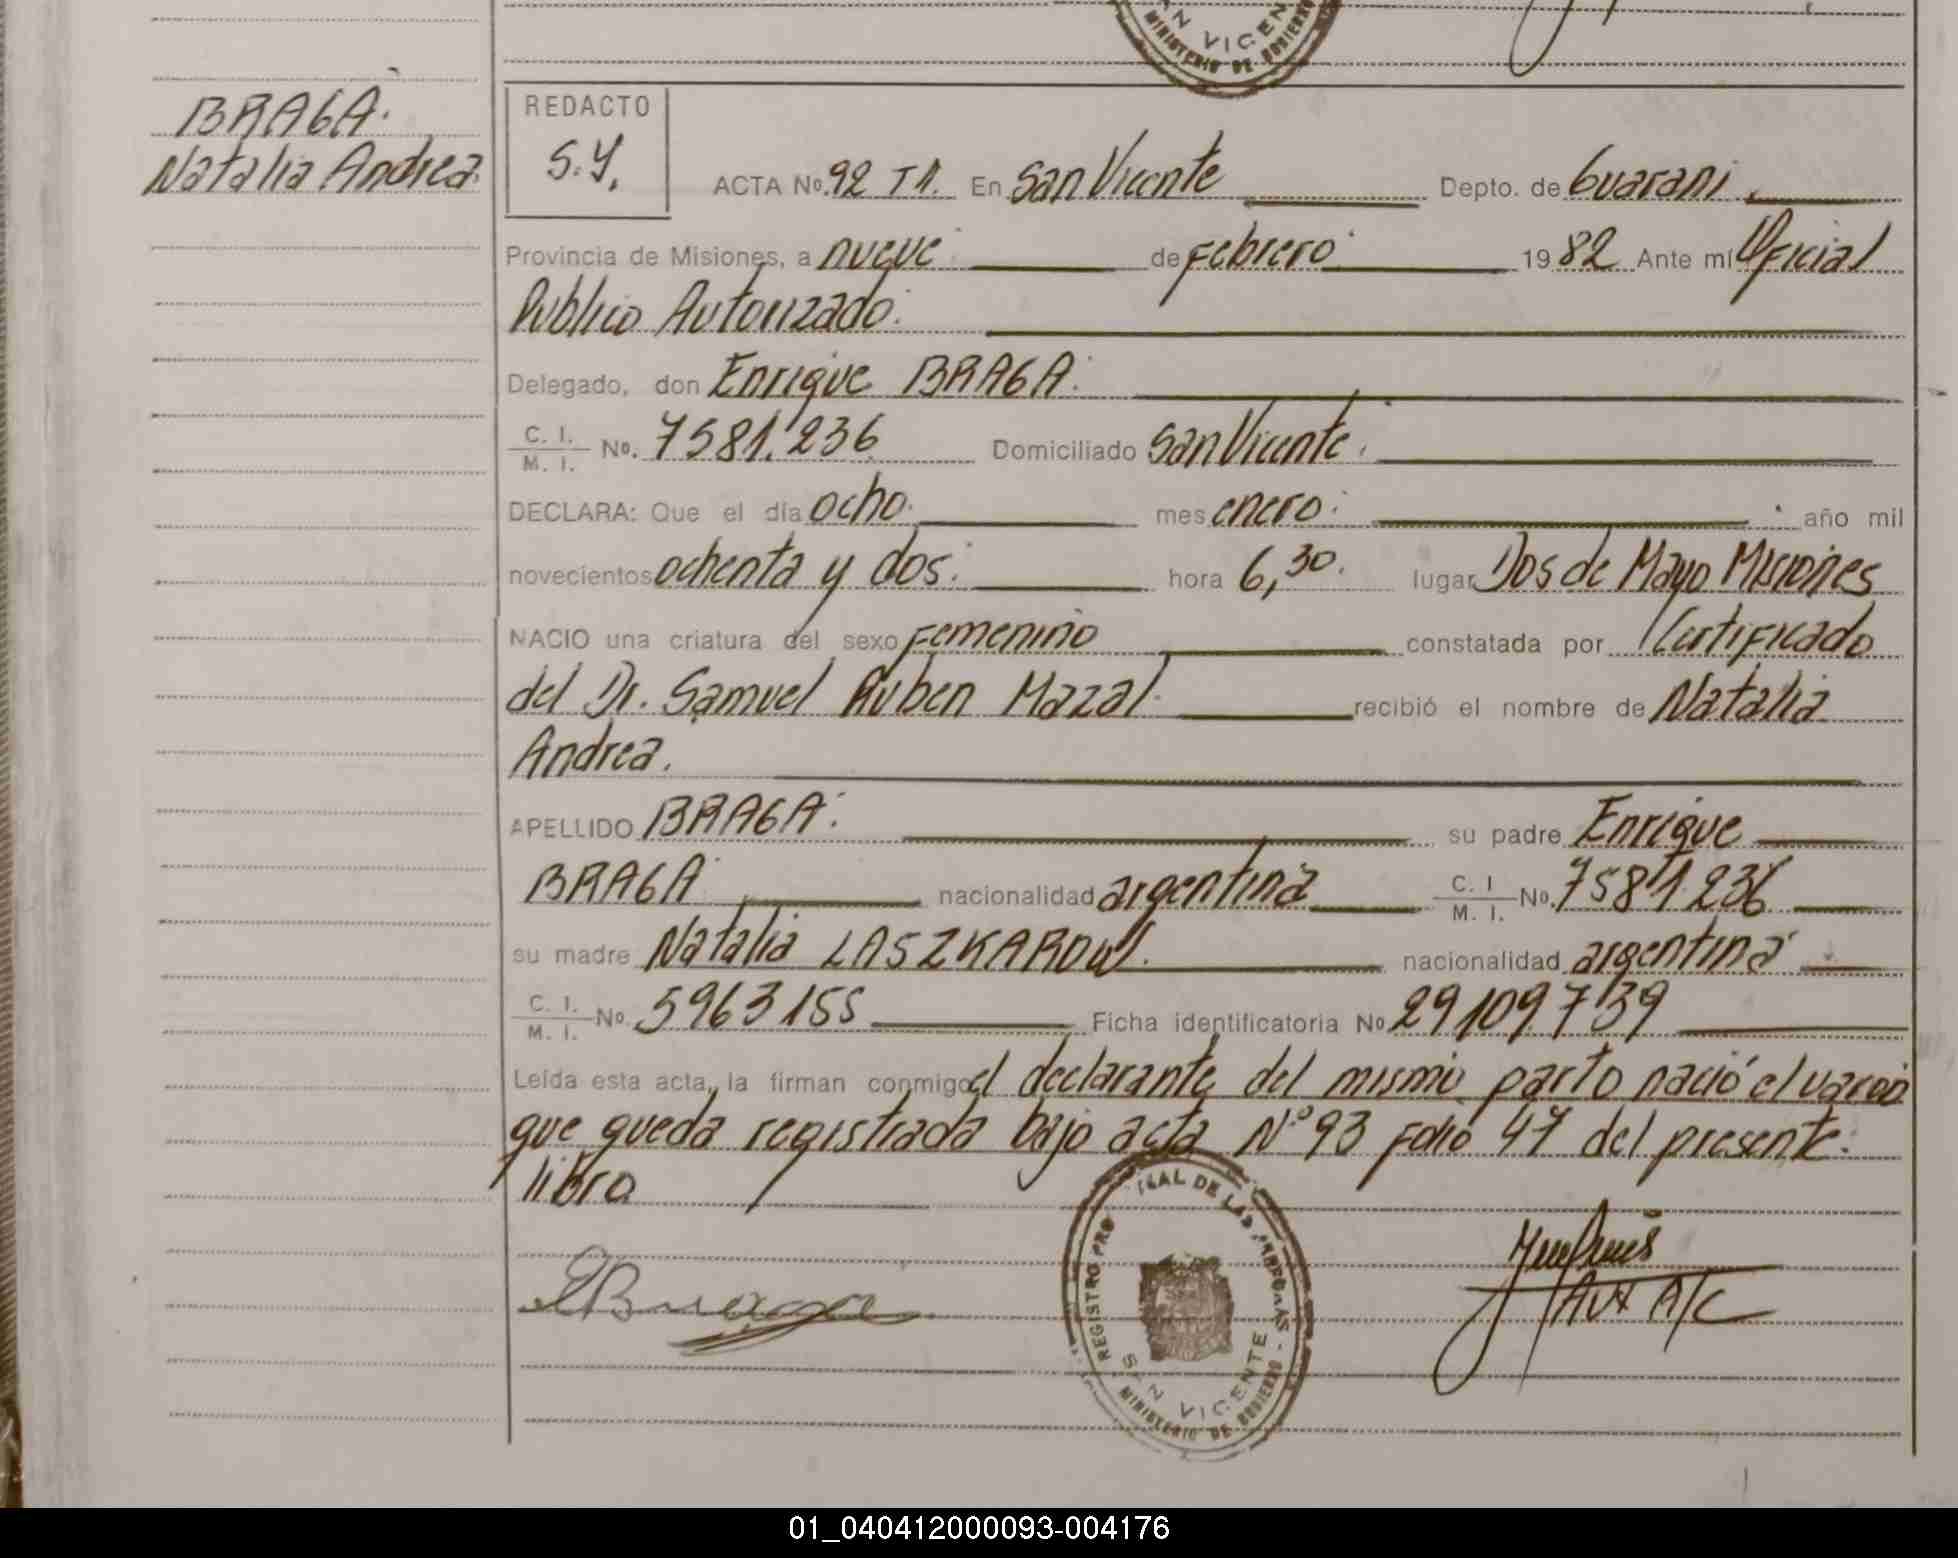 SAN VICEN
MINISTERIO DE GOBIERNO
BRAGA.
Natalia Andrea.
REDACTO
S.Y.
ACTA No. 92 T1. En San Vicente Depto. de Guarani
Provincia de Misiones, a nueve de Febrero 1982 Ante mí Oficial
Publico Autorizado.
Delegado, don Enrique BRAGA.
C. I. / M. I. No. 7581.236 Domiciliado San Vicente.
DECLARA: Que el día ocho. mes enero. año mil
novecientos ochenta y dos. hora 6,30. lugar Dos de Mayo Misiones
NACIO una criatura del sexo Femenino constatada por Certificado
del Dr. Samuel Ruben Mazal. recibió el nombre de Natalia
Andrea.
APELLIDO BRAGA. su padre Enrique
BRAGA nacionalidad argentina C. I / M. I. No. 7581.236
su madre Natalia LASZKAROW. nacionalidad argentina
C. I. / M. I. No. 5963155 Ficha identificatoria No 29109739
Leída esta acta, la firman conmigo el declarante del mismo parto nació el varon
que queda registrada bajo acta N° 93 Folio 47 del presente.
libro
EBraga
REGISTRO PRO NAL DE LAS PERSONAS
SAN VICENTE
MINISTERIO DE GOBIERNO
AUX A/C
01_040412000093-004176